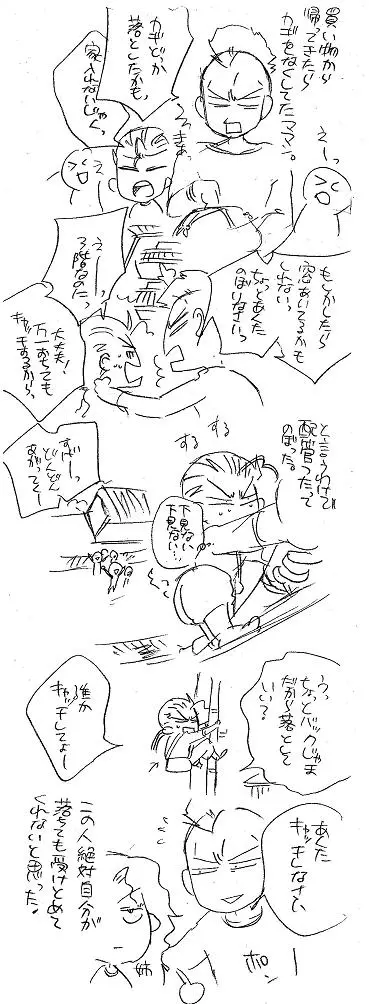 買い物から
帰ってきたら
カギをなくしてたママン。
カギどっか
落としたかも、
家入れないじゃん、
えーっ
えーっ
もしかしたら
窓あいてるかも
しれないっ
ちょっとあくた
のぼりなさいっ
えーっ
3階なのにっ
大丈夫!
万一おちても
キャッチするから、
と言うわけで
配管つたって
のぼった
する
する
すげーっ
どんどん
あがってくー
下見ない、
下見ない…
うっ
ちょっとバックじゃま
だから落として
いい?
誰か
キャッチしてよー
あくた
キャッチしなさい、
この人絶対自分が
落ちても受けとめて
くれないと思った。
姉
ポン